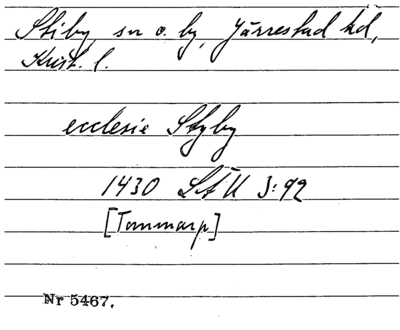 Stiby, sn o. by, Järrestad hd,
Krist. l.
ecclesie Styby
1430 LÄU 3:92
[Tommarp]
Nr 5467.